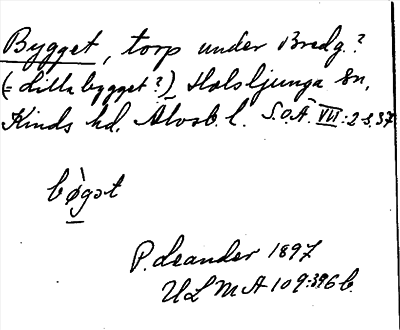 Bygget, torp under Bredg.?
(= Lilla bygget?) Holsljunga sn,
Kinds hd, Älvsb. l. S.O.Ä. VII:2 s. 37
bø̀gət
P. Leander 1897
ULMA 109:396 b.